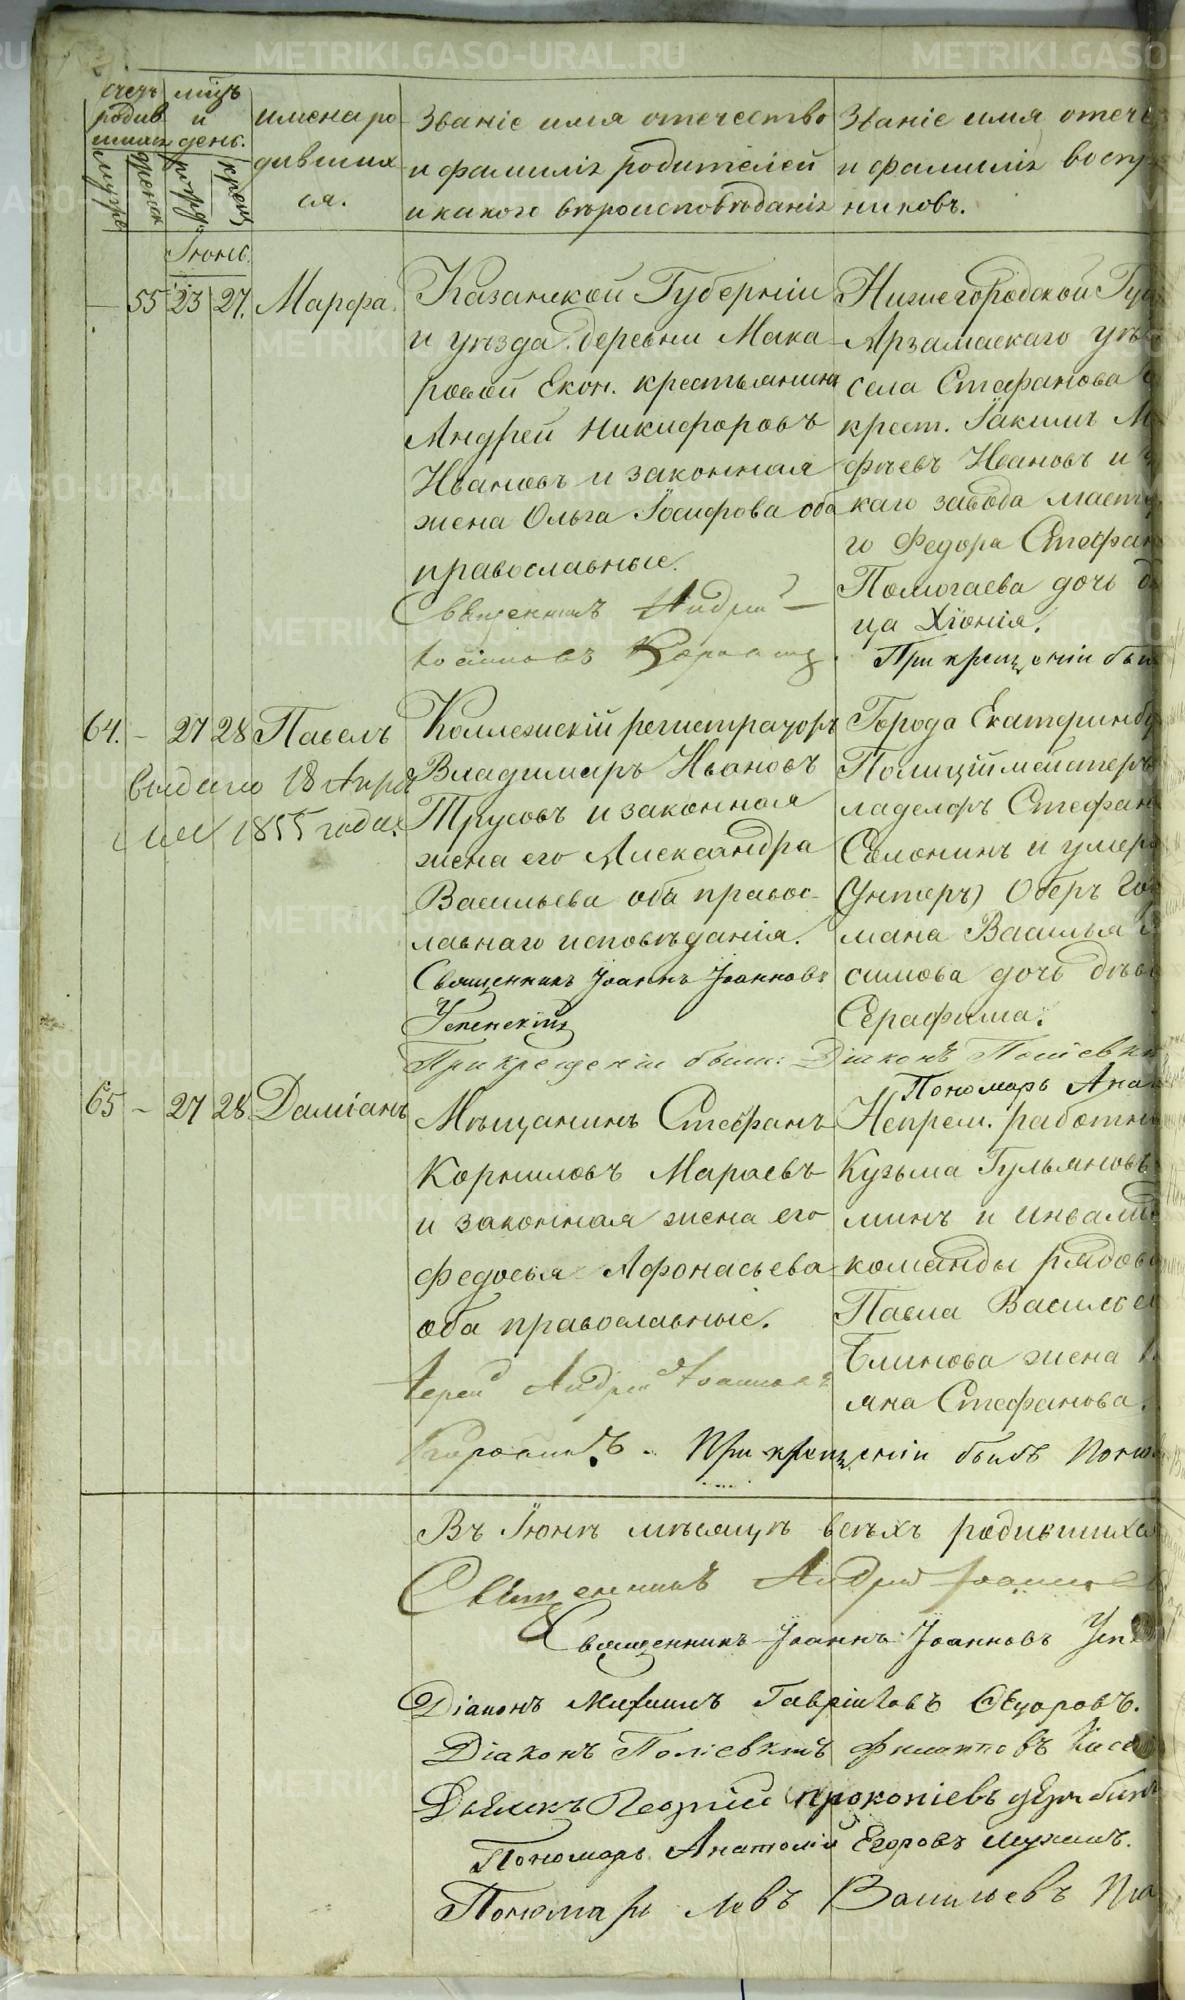 счетъ родив шихся
мцъ и день.
имена ро
дивших
ся.
Званіе имя отчество
и фамилія родителей
и какого вѣроисповѣданія
Званіе имя отче
и фамилія воспр
никовъ.
мужес
женск
рожд.
крещ
Іюнь.
55 23 27. Марфа.
Казанской Губерніи
и уѣзда деревни Мака
ровой Екон. крестьянинъ
Андрей Никифоровъ
Ивановъ и законная
жена Ольга Іосифова оба
православные.
Священникъ Андрей
Іоанновъ
Нижегородской Гу
Арзамаскаго уѣ
села Стефанова
крест. Іакимъ М
фѣевъ Ивановъ и
каго завода маст
го Федора Стефан
Помогаева дочь
ца Хіонія.
При крещеніи бы
64. - 27 28 Павелъ
выдано 18 Апрѣ
ля 1855 года.
Коллежскій регистраторъ
Владимиръ Ивановъ
Трусовъ и законная
жена его Александра
Васильева оба правос-
лавнаго исповѣданія.
Священникъ Іоаннъ Іоанновъ
Успенскій
Города Екатеринбу
Полиціймейстеръ
ладелфъ Стефан
Солонинъ и умер
(Унтеръ) Оберъ Го
мана Василья
симова дочь дѣв
Серафима.
При крещеніи были: Діаконъ Поліевк
Пономарь Ана
65 - 27 28. Даміанъ
Мѣщанинъ Стефанъ
Корниловъ Мараевъ
и законная жена его
Федосья Афонасьева
оба православные.
Іерей Андрей Іоанновъ
Непрем. работни
Кузьма Гульяновъ
минъ и инвали
команды рядов
Павла Василье
Блинова жена
яна Стефанова.
При крещеніи былъ Поно
Въ Іюнѣ мѣсяцѣ всѣхъ родившихся
Священникъ Андрей Іоаннов
Священникъ Іоаннъ Іоанновъ Усп
Діаконъ Михаилъ Гавріиловъ Ѳедоровъ.
Діаконъ Поліевктъ Филипповъ
Дьячекъ Георгій Прокопіевъ
Пономарь Анатолій Егоровъ Мухинъ.
Пономарь Левъ Васильевъ
METRIKI.GASO-URAL.RU